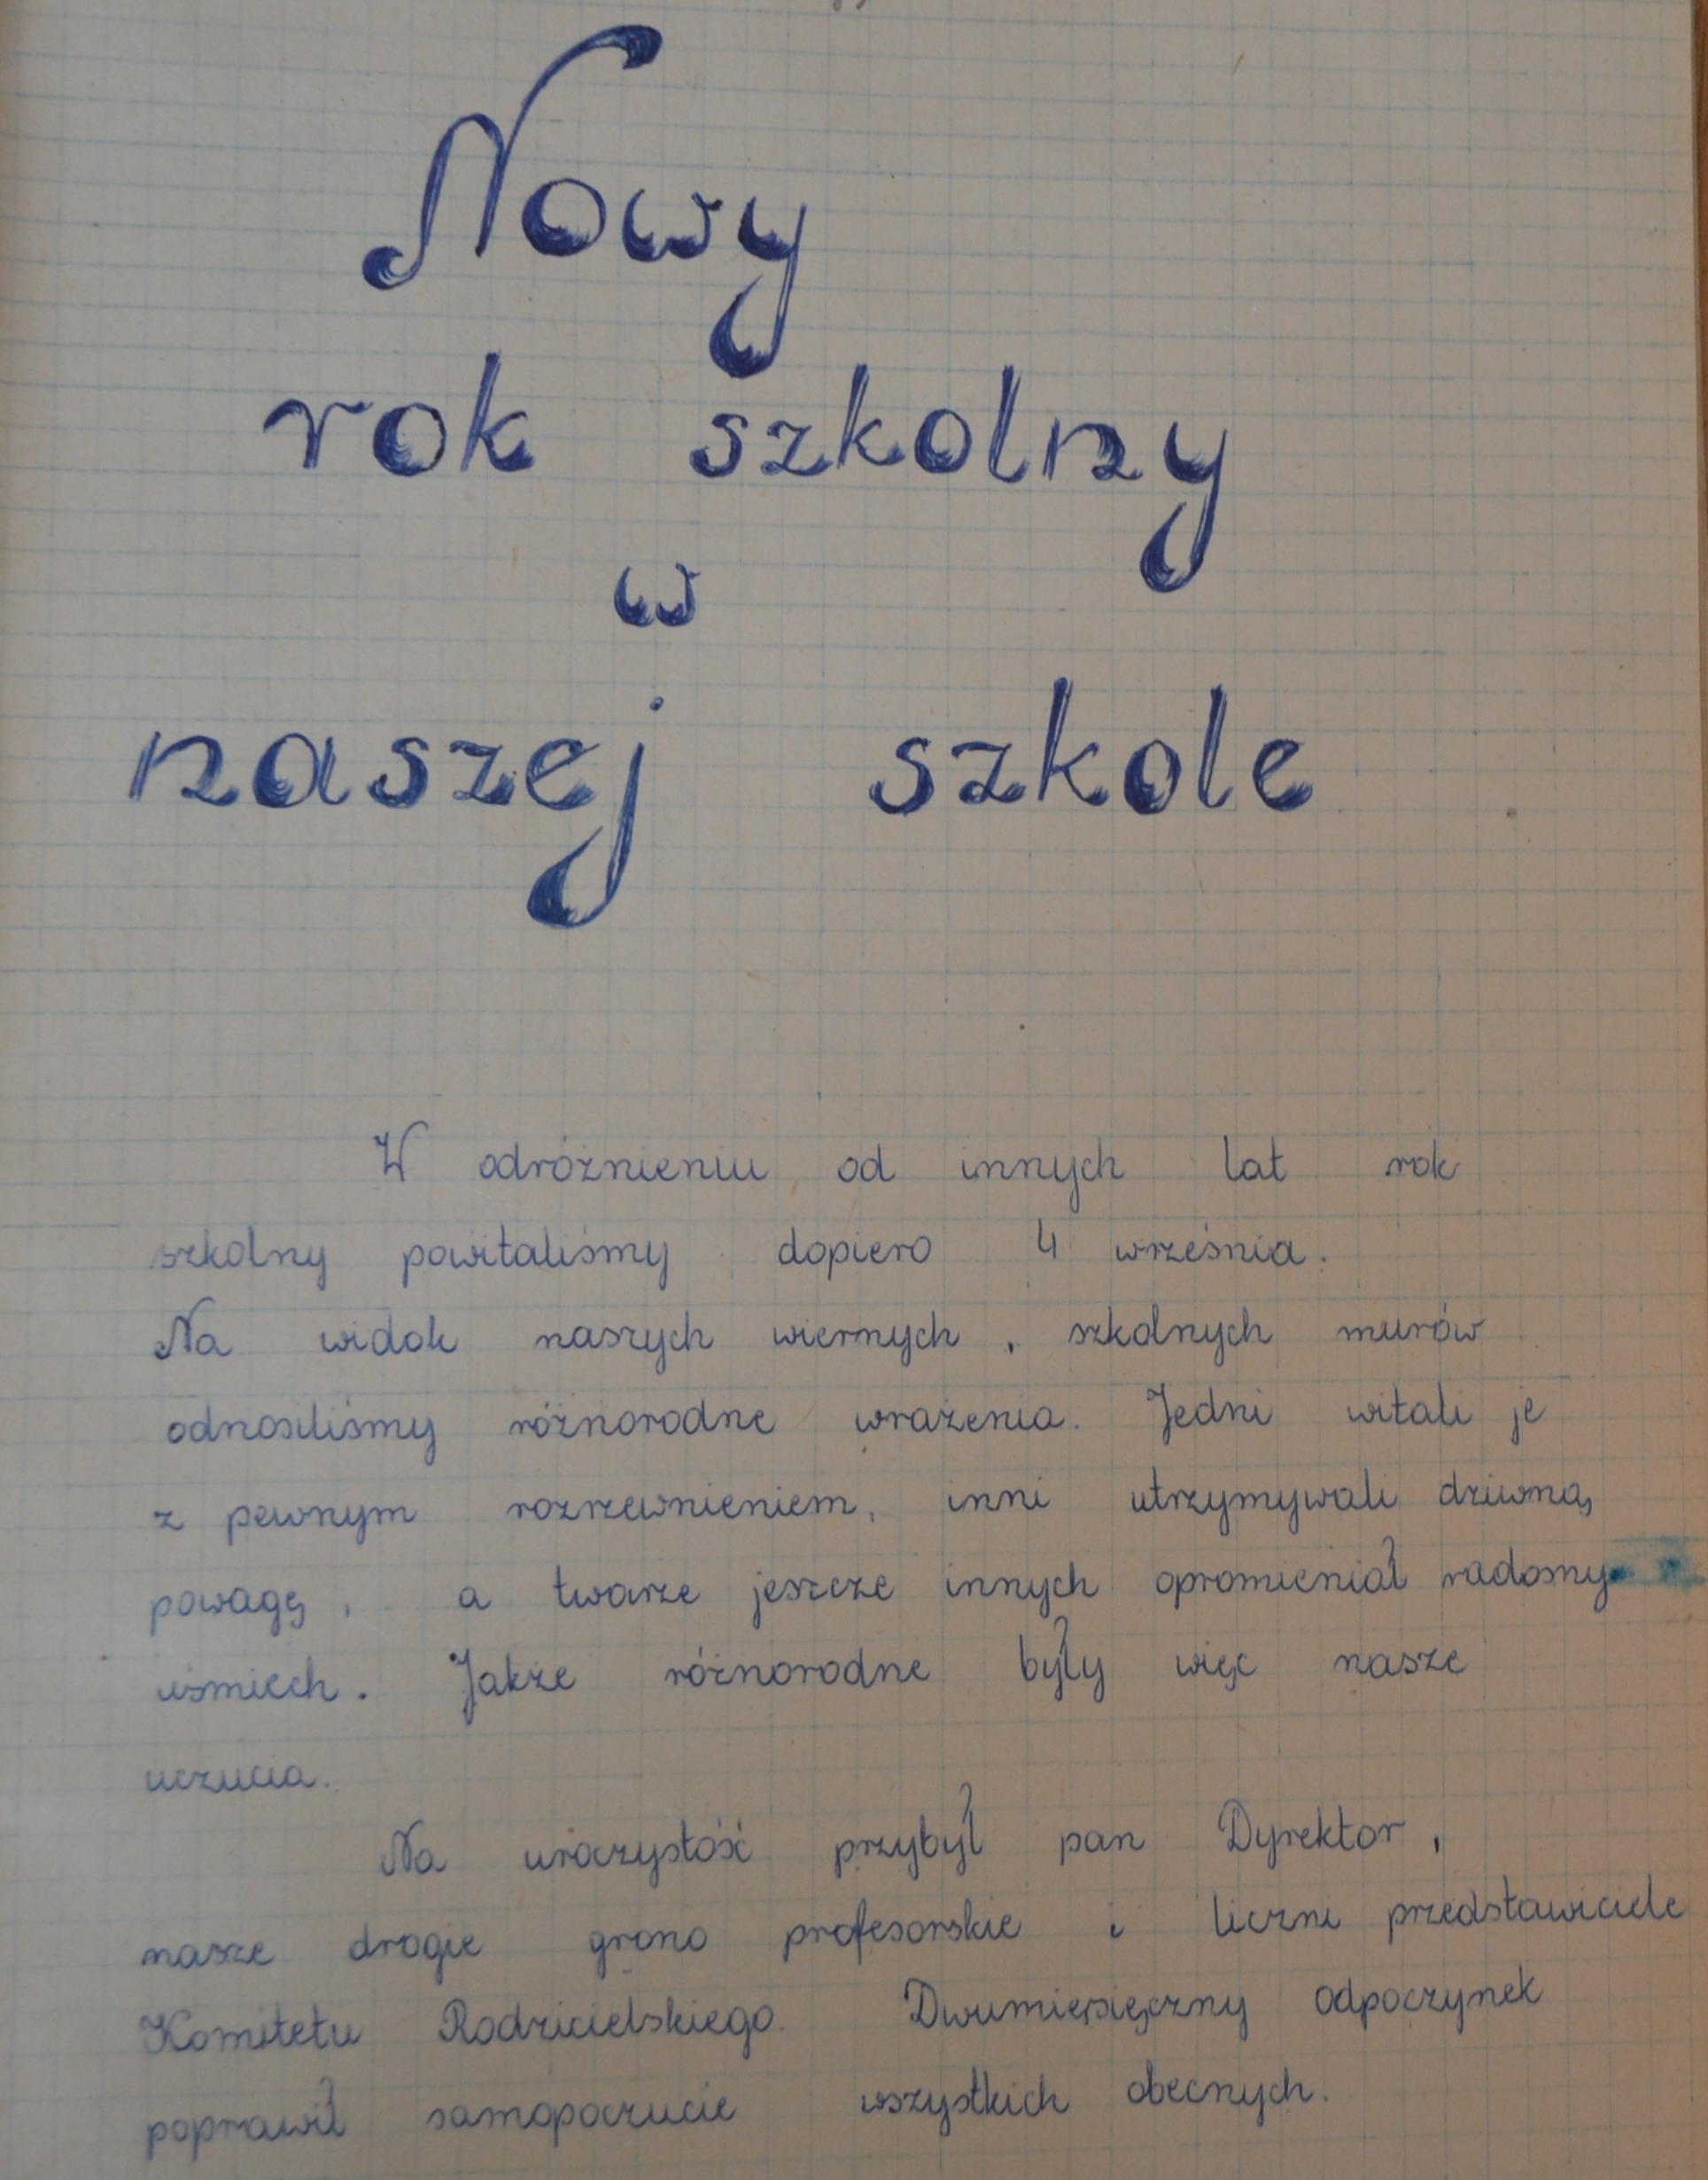 Nowy
rok szkolny
w
naszej szkole
W odróżnieniu od innych lat rok
szkolny powitaliśmy dopiero 4 września.
Na widok naszych wiernych, szkolnych murów
odnosiliśmy różnorodne wrażenia. Jedni witali je
z pewnym rozrzewnieniem, inni utrzymywali dziwną
powagę, a twarze jeszcze innych opromieniał radosny
uśmiech. Jakże różnorodne były więc nasze
uczucia.
Na uroczystość przybył pan Dyrektor,
nasze drogie grono profesorskie i liczni przedstawiciele
Komitetu Rodzicielskiego. Dwumiesięczny odpoczynek
poprawił samopoczucie wszystkich obecnych.